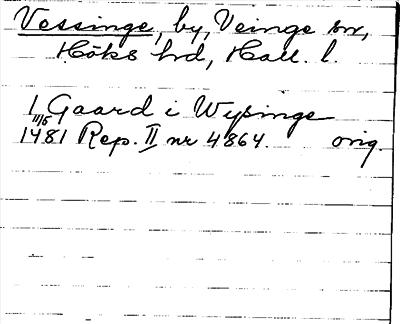 Vessinge, by, Veinge sn,
Höks hd, Hall. l.
1 Gaard i Wysinge
11/5
1481 Rep. II nr 4864. orig.